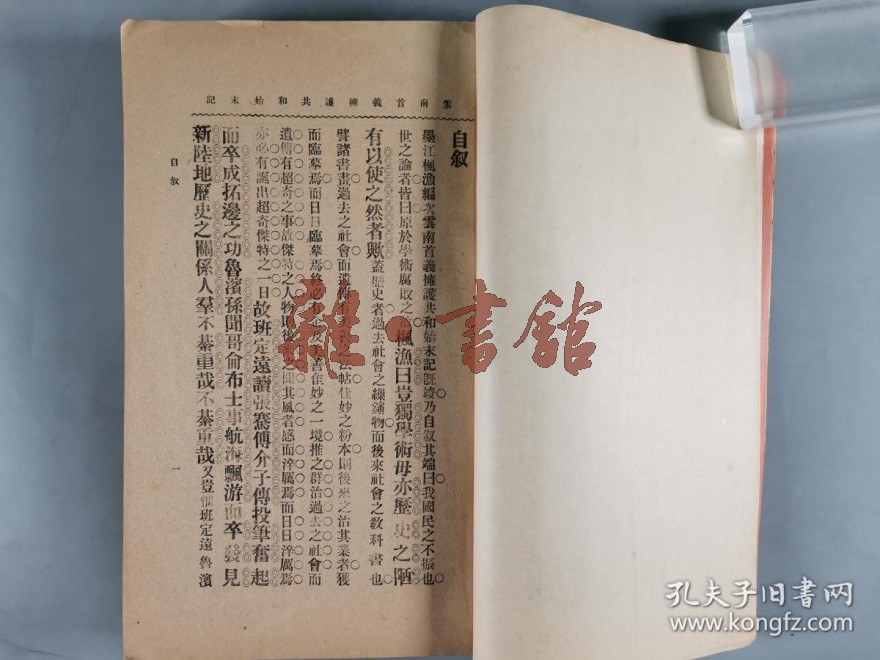 雲南首義擁護共和始末記
自叙
墨江楓漁編次雲南首義擁護共和始末記既竣乃自叙其端曰我國民之不振也
世之論者皆曰原於學術腐敗之 楓漁曰豈獨學術毋亦歷史之陋
有以使之然者歟蓋歷史者過去社會之 物而後來社會之敎科書也
譬諸書畫過去之社會而遺傳有 法帖佳妙之粉本則後來之治其業者獲
而臨摹焉而日日臨摹焉終必有 善佳妙之一境推之群治過去之社會而
遺傳有超奇之事故傑特之人物則後 聞其風者感而淬厲焉而日日淬厲焉
亦必有誕出超奇傑特之一日故班定遠讀張騫傅介子傳投筆奮起
而卒成拓邊之功魯濱孫聞哥侖布士事航海飄游而卒發見
新陸地歷史之關係人羣不綦重哉不綦重哉又豈惟班定遠魯濱
自叙
一
雜·書館
孔夫子旧书网
www.kongfz.com